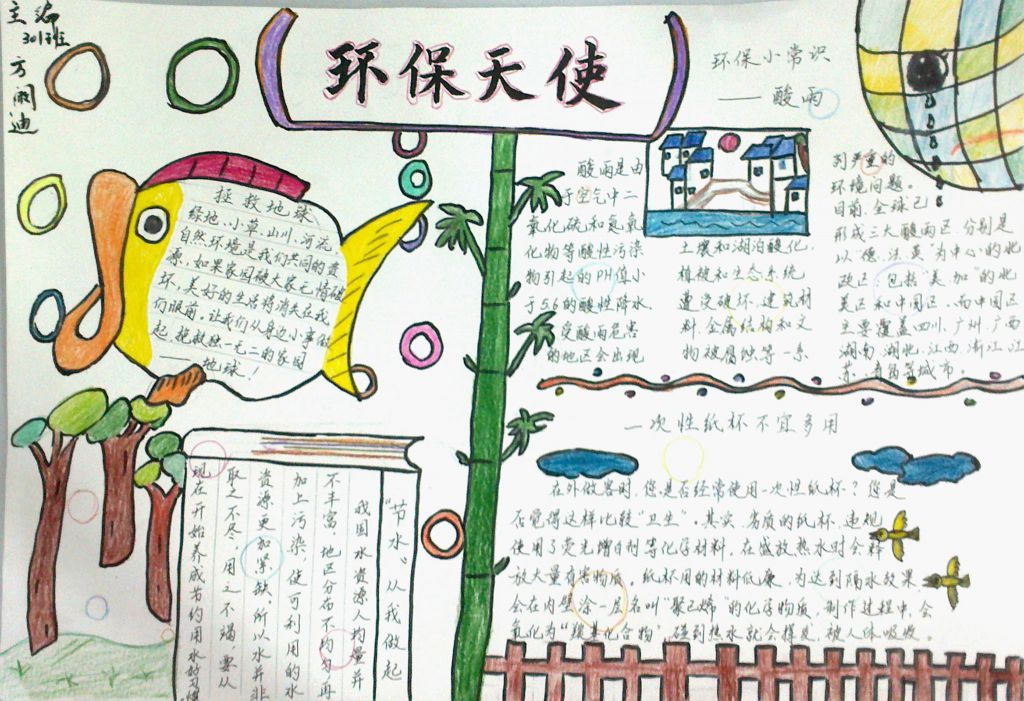 主编
301班
方阚迪
环保天使
拯救地球
绿地、小草、山川、河流
自然环境是我们共同的资
源，如果家园破大家无情破
坏，美好的生活将消失在我
们眼前。让我们从身边小事做
起，挽救独一无二的家园
——地球！
"节水"从我做起
我国水资源人均量并
不丰富，地区分布不均匀再
加上污染，使可利用的水
资源更加紧缺，所以水并非
取之不尽，用之不竭，要从
现在开始养成节约用水的习惯
环保小常识
——酸雨
酸雨是由
于空气中二
氧化硫和氮氧
化物等酸性污染
物引起的PH值小
于5.6的酸性降水
受酸雨危害
的地区会出现
土壤和湖泊酸化，
植被和生态系统
遭受破坏，建筑材
料、金属结构和文
物被腐蚀等一系
列严重的
环境问题。
目前，全球已
形成三大酸雨区，分别是
以"德、法、英"为中心的北
欧区，包括"美、加"的北
美区和中国区，而中国区
主要覆盖四川、广州、广西
湖南、湖北、江西、浙江、江
苏、青岛等城市。
一次性纸杯不宜多用
在外做客时，您是否经常使用一次性纸杯？您是
否觉得这样比较"卫生"。其实，劣质的纸杯，违规
使用了荧光增白剂等化学材料，在盛放热水时会释
放大量有害物质。纸杯用的材料低廉，为达到隔水效果，
会在内壁涂一层名叫"聚乙烯"的化学物质，制作过程中，会
氧化为"羰基化合物"，碰到热水就会挥发，被人体吸收。